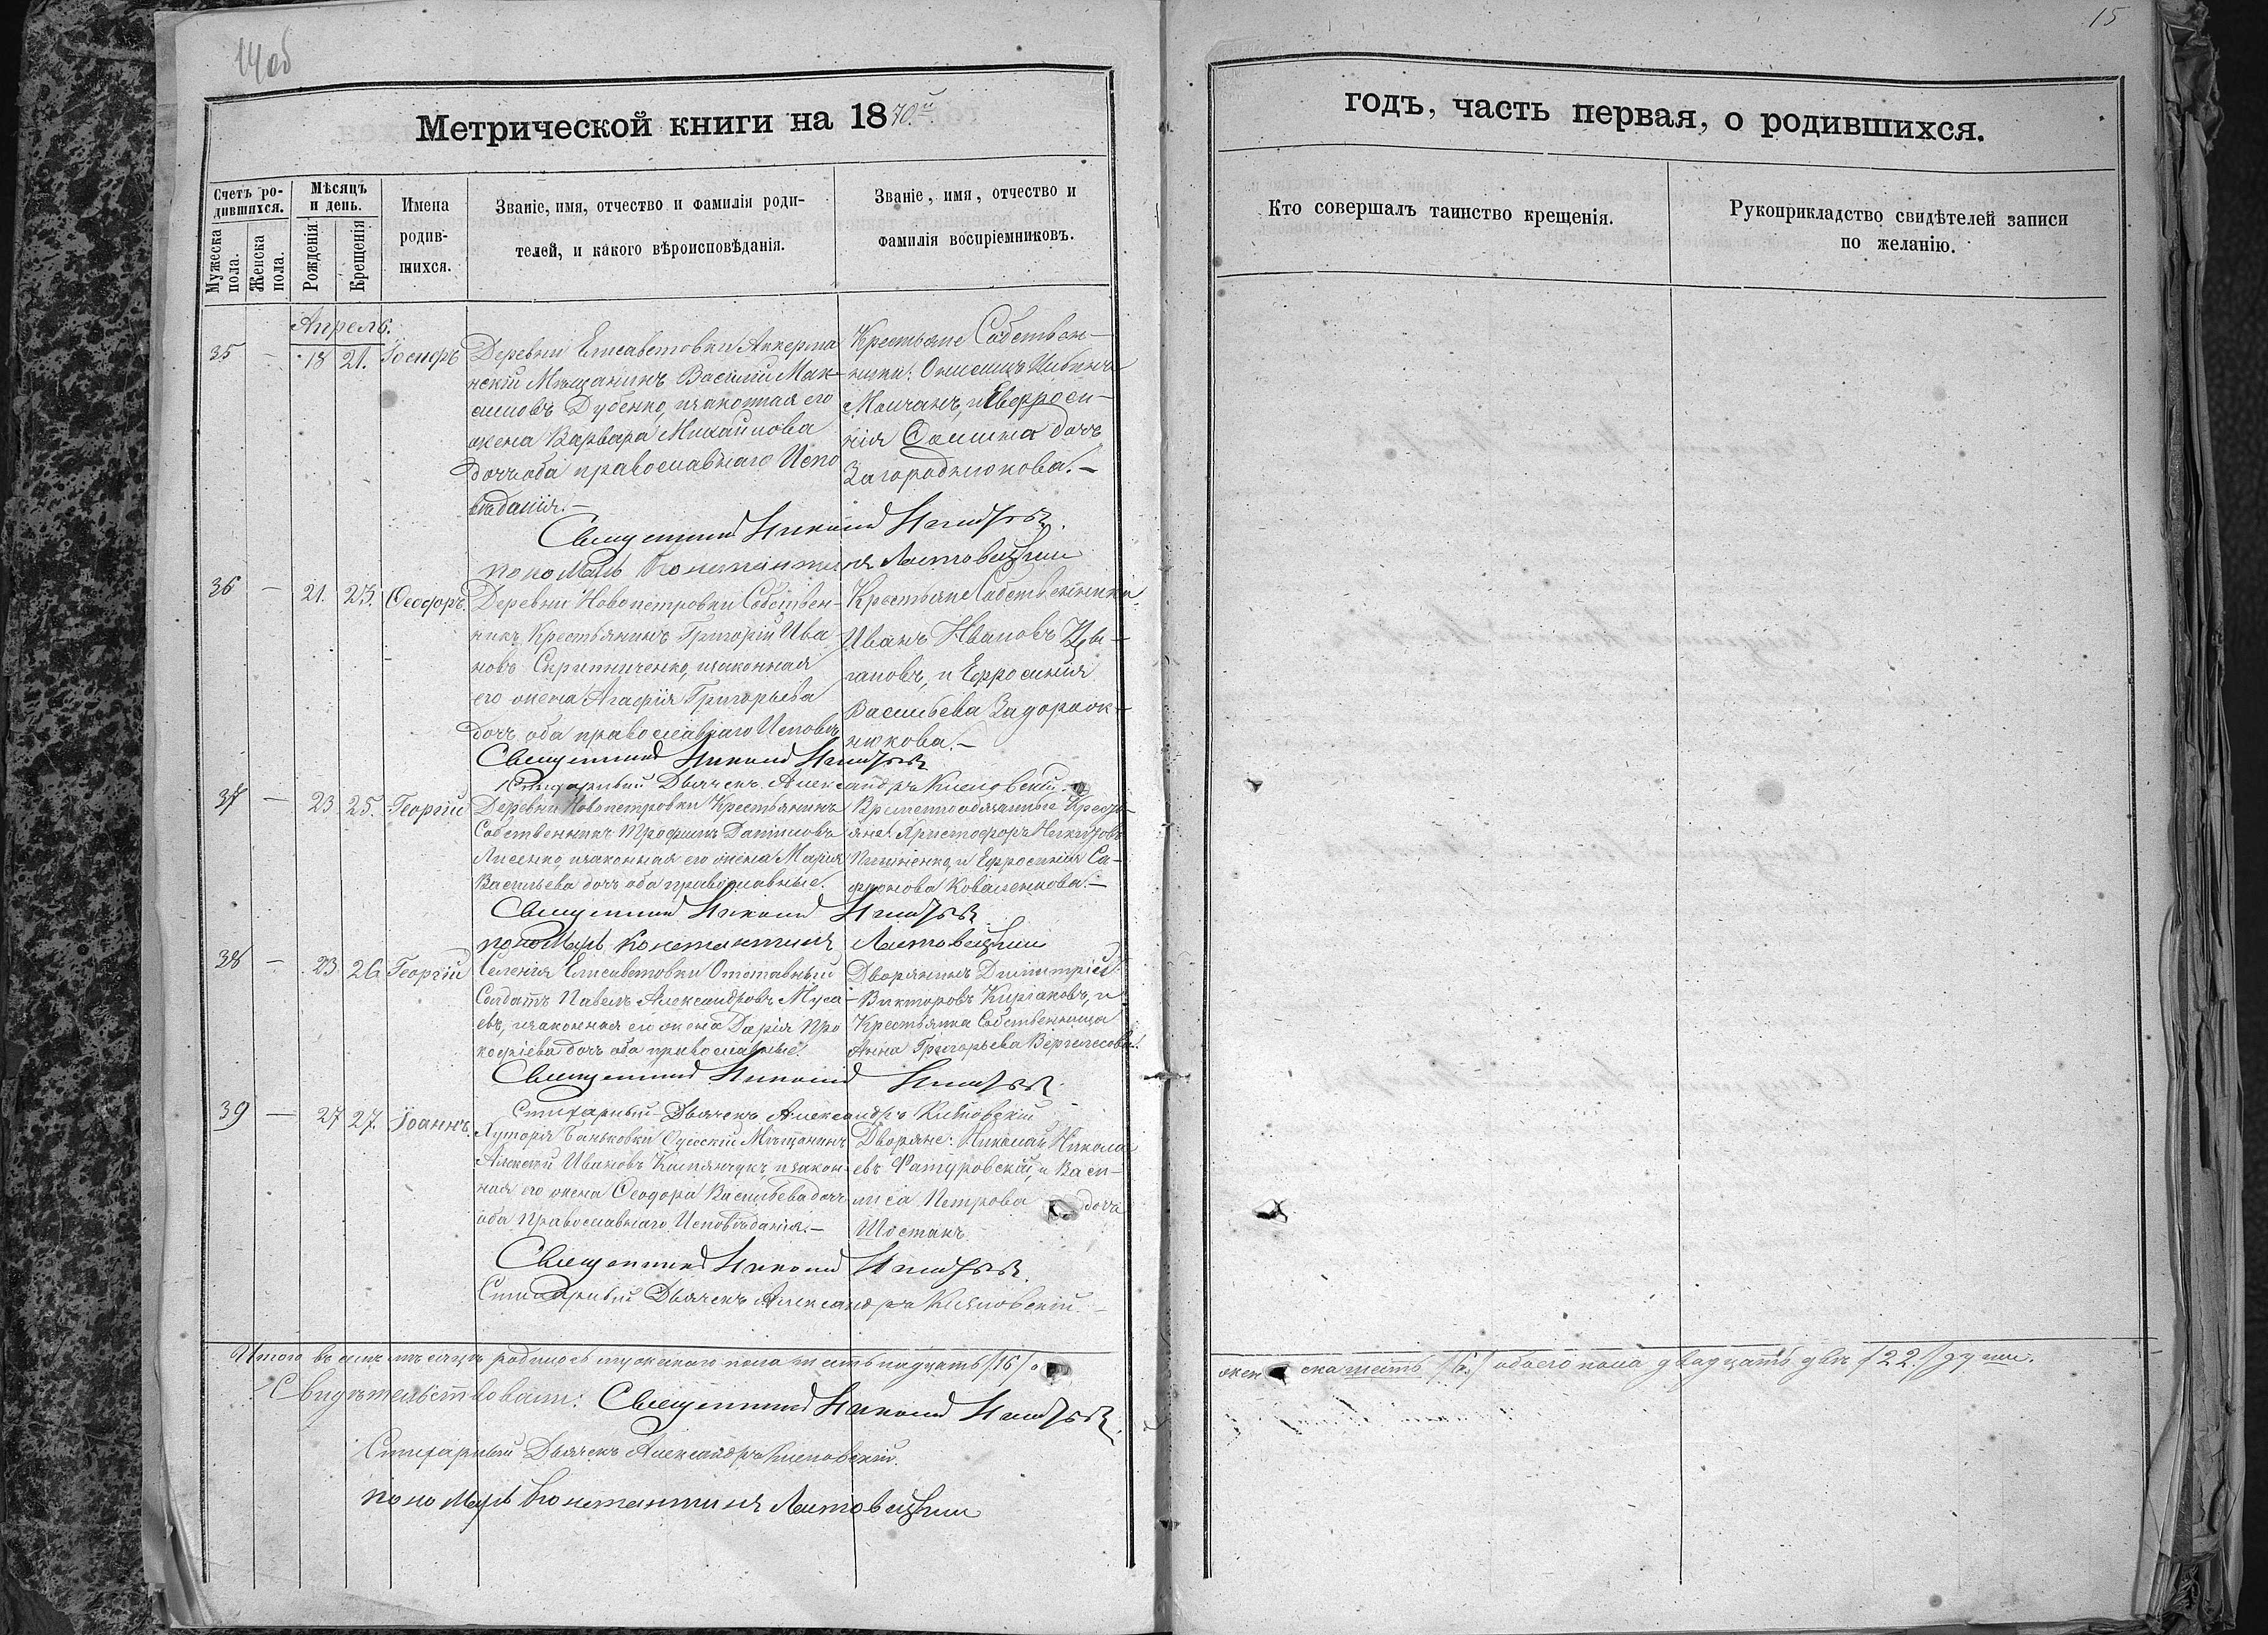 14об
15
Метрической книги на 1870й
годъ, часть первая, о родившихся.
Счетъ родившихся.
Мужеска пола.
Женска пола.
Мѣсяцъ и день.
Рожденія.
Крещенія.
Имена родив-
шихся.
Званіе, имя, отчество и фамилія роди-
телей, и какого вѣроисповѣданія.
Званіе, имя, отчество и
фамилія воспріемниковъ.
Кто совершалъ таинство крещенія.
Рукоприкладство свидѣтелей записи
по желанію.
Апрель.
35 — 18 21. Іосифъ
Деревни Елисаветовки Аккерма
нскій Мѣщанинъ Василій Мак-
симовъ Дубенко, изаконная его
жена Варвара Михайлова
дочь оба православнаго Испо
вѣданія.—
Крестьяне Собствен-
ники:
Молчанъ, и Евфроси-
нія дочь
Загороднюкова.—
Священникъ Николай
пономарь Константинъ Листовецкій
36 — 21. 23. Ѳеодоръ.
Деревни Новопетровки Собствен-
никъ Крестьянинъ Григорій Ива
новъ Скрипниченко, изаконная
его жена Агафія Григорьева
дочь оба православнаго Исповѣд
Крестьяне Собственники
Иванъ Ивановъ Цы-
гановъ, и Ефросинія
Васильева Задорож-
нюкова.—
Священникъ Николай
Стихарный Дьячекъ Александръ
37 — 23 25. Георгій
Деревни Новопетровки Крестьянинъ
Собственникъ Трофимъ Даниловъ
Лисенко, изаконная его жена Марія
Васильева дочь оба православные.
Временнообязанные Кресть-
яне: Христофоръ Никитовъ
и Ефросинія Са-
фронова Коваленкова.—
Священникъ Николай
пономарь Константинъ Листовецкій
38 — 23 26 Георгій
Селенія Елисаветовки Отставный
Солдатъ Павелъ Александровъ Муса
евъ, изаконная его жена Дарія Про
кофіева дочь оба православные.
Дворянинъ Димитрій
Викторовъ Киріаковъ, и
Крестьянка Собственница
Анна Григорьева Вергелесова.
Священникъ Николай
Стихарный Дьячекъ Александръ
39 — 27 27. Іоаннъ.
Хутора Баньковки Одесскій Мѣщанинъ
Алексій Ивановъ Камянчукъ, изакон-
ная его жена Ѳеодора Васильева дочь
оба Православнаго Исповѣданія.—
Дворяне: Николай Никола
евъ Фатуровскій, и Васи-
лиса Петрова дочь
Шостакъ
Священникъ Николай
Стихарный Дьячекъ Александръ
Итого въ семъ мѣсяцѣ родилось мужескаго пола шестьнадцать /16/
женска шесть /6./ обоего пола двадцать двѣ /22./ души.
Свидѣтельствовали: Священникъ Николай
Стихарный Дьячекъ Александръ
пономарь Константинъ Листовецкій